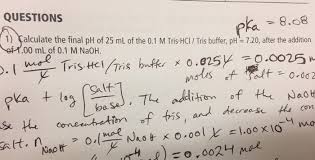 QUESTIONS
pka = 8.08
1) Calculate the final pH of 25 mL of the 0.1 M Tris-HCl / Tris buffer, pH = 7.20, after the addition
of 1.00 mL of 0.1 M NaOH.
0.1 mol Tris HCl / Tris buffer x 0.025 L = 0.0025 m
moles of salt = 0.002
pka + log [salt]
base. The addition of the NaOH
se the concentration of tris, and decrease the con
salt. n NaOH = 0.1 mol NaOH x 0.001 L = 1.00 x 10⁻⁴ mo
mol) = 0.0024 mol